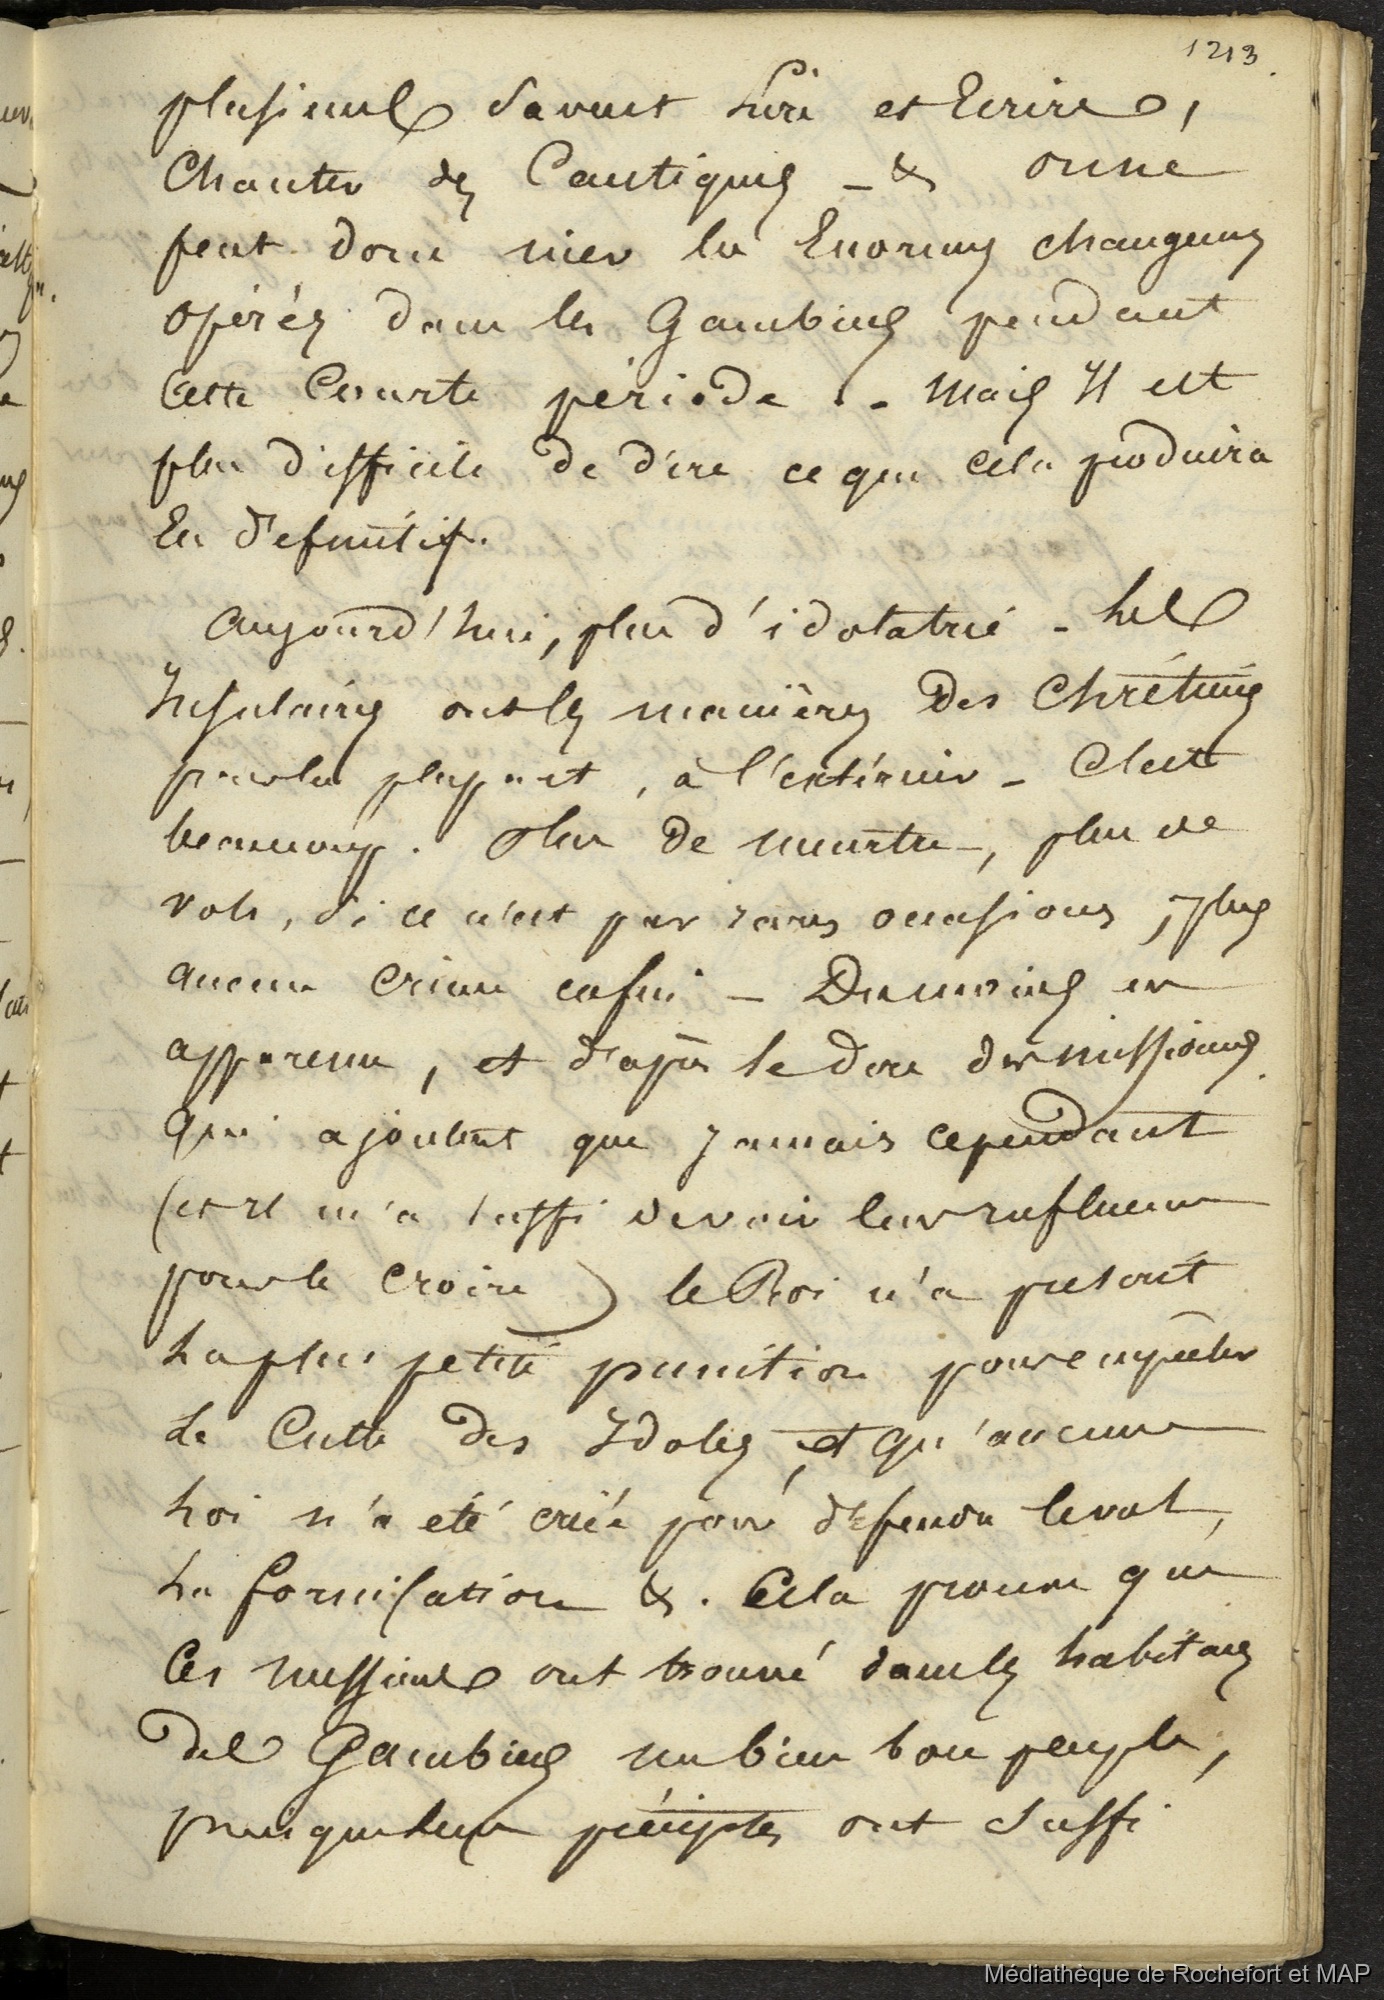 1213.
plusieurs savent Lire et Ecrire,
Chanter des Cantiques - & on ne
peut donc nier les Enormes changemens
opérés dans les Gambiers pendant
Cette Courte période. - Mais Il est
plus difficile de dire ce que cela produira
En définitif.
Aujourd'hui, plus d'idolatrie - Les
Insulaires ont les manières des Chrétiens
pour la plupart, à l'extérieur - C'est
beaucoup. Plus de meurtre, plus de
vols, si ce n'est par rares occasions, plus
aucun crime enfin - Du moins en
apparence, et d'après le dire des missions.
qui ajoutent que Jamais cependant
(et Il m'a suffi de voir leur influence
pour le croire) le Roi n'a prescrit
La plus petite punition pour empêcher
Le Culte des Idoles, et qu'aucune
Loi n'a été créée pour défendre le vol,
La fornication &. Cela prouve que
Ces missions ont trouvé dans les habitans
des Gambiers un bien bon peuple,
puisque leurs préceptes ont suffi
Médiathèque de Rochefort et MAP